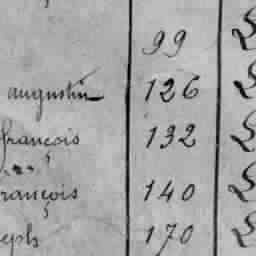 99
augustin 126
françois 132
rançois 140
eph 170